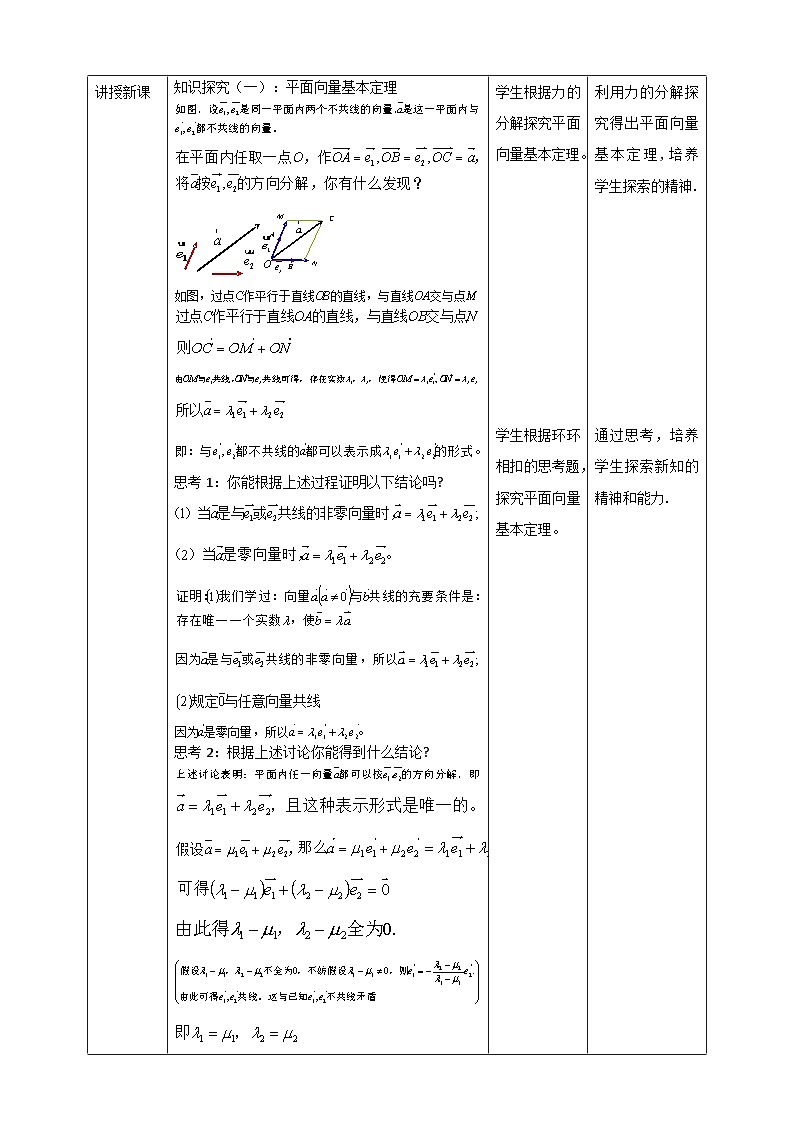 讲授新课
知识探究（一）：平面向量基本定理
如图，设e₁,e₂是同一平面内两个不共线的向量,a是这一平面内与
e₁,e₂都不共线的向量.
在平面内任取一点O，作OA = e₁,OB = e₂,OC = a，
将a按e₁,e₂的方向分解，你有什么发现？
e₁ a e₂ M C e₁ a O e₂ B N
如图，过点C作平行于直线OB的直线，与直线OA交与点M
过点C作平行于直线OA的直线，与直线OB交与点N
则OC = OM + ON
由OM与e₁共线,ON与e₂共线可得，存在实数λ₁，λ₂，使得OM = λ₁e₁, ON = λ₂e₂
所以a = λ₁e₁ + λ₂e₂
即：与e₁,e₂都不共线的a都可以表示成λ₁e₁ + λ₂e₂的形式。
思考 1：你能根据上述过程证明以下结论吗?
⑴ 当a是与e₁或e₂共线的非零向量时，a = λ₁e₁ + λ₂e₂；
（2）当a是零向量时，a = λ₁e₁ + λ₂e₂。
证明:(1)我们学过：向量a(a ≠ 0)与b共线的充要条件是：
存在唯一一个实数λ，使b = λa
因为a是与e₁或e₂共线的非零向量，所以a = λ₁e₁ + λ₂e₂；
(2)规定0与任意向量共线
因为a是零向量，所以a = λ₁e₁ + λ₂e₂。
思考 2：根据上述讨论你能得到什么结论?
上述讨论表明：平面内任一向量a都可以按e₁,e₂的方向分解，即
a = λ₁e₁ + λ₂e₂，且这种表示形式是唯一的。
假设a = μ₁e₁ + μ₂e₂，那么a = μ₁e₁ + μ₂e₂ = λ₁e₁ + λ
可得(λ₁ − μ₁)e₁ + (λ₂ − μ₂)e₂ = 0
由此得λ₁ − μ₁，λ₂ − μ₂全为0.
(假设λ₁ − μ₁，λ₂ − μ₂不全为0，不妨假设λ₁ − μ₁ ≠ 0，则e₁ = − (λ₂ − μ₂)/(λ₁ − μ₁) e₂.
由此可得e₁,e₂共线，这与已知e₁,e₂不共线矛盾)
即λ₁ = μ₁，λ₂ = μ₂
学生根据力的
分解探究平面
向量基本定理。
学生根据环环
相扣的思考题，
探究平面向量
基本定理。
利用力的分解探
究得出平面向量
基本定理，培养
学生探索的精神.
通过思考，培养
学生探索新知的
精神和能力.